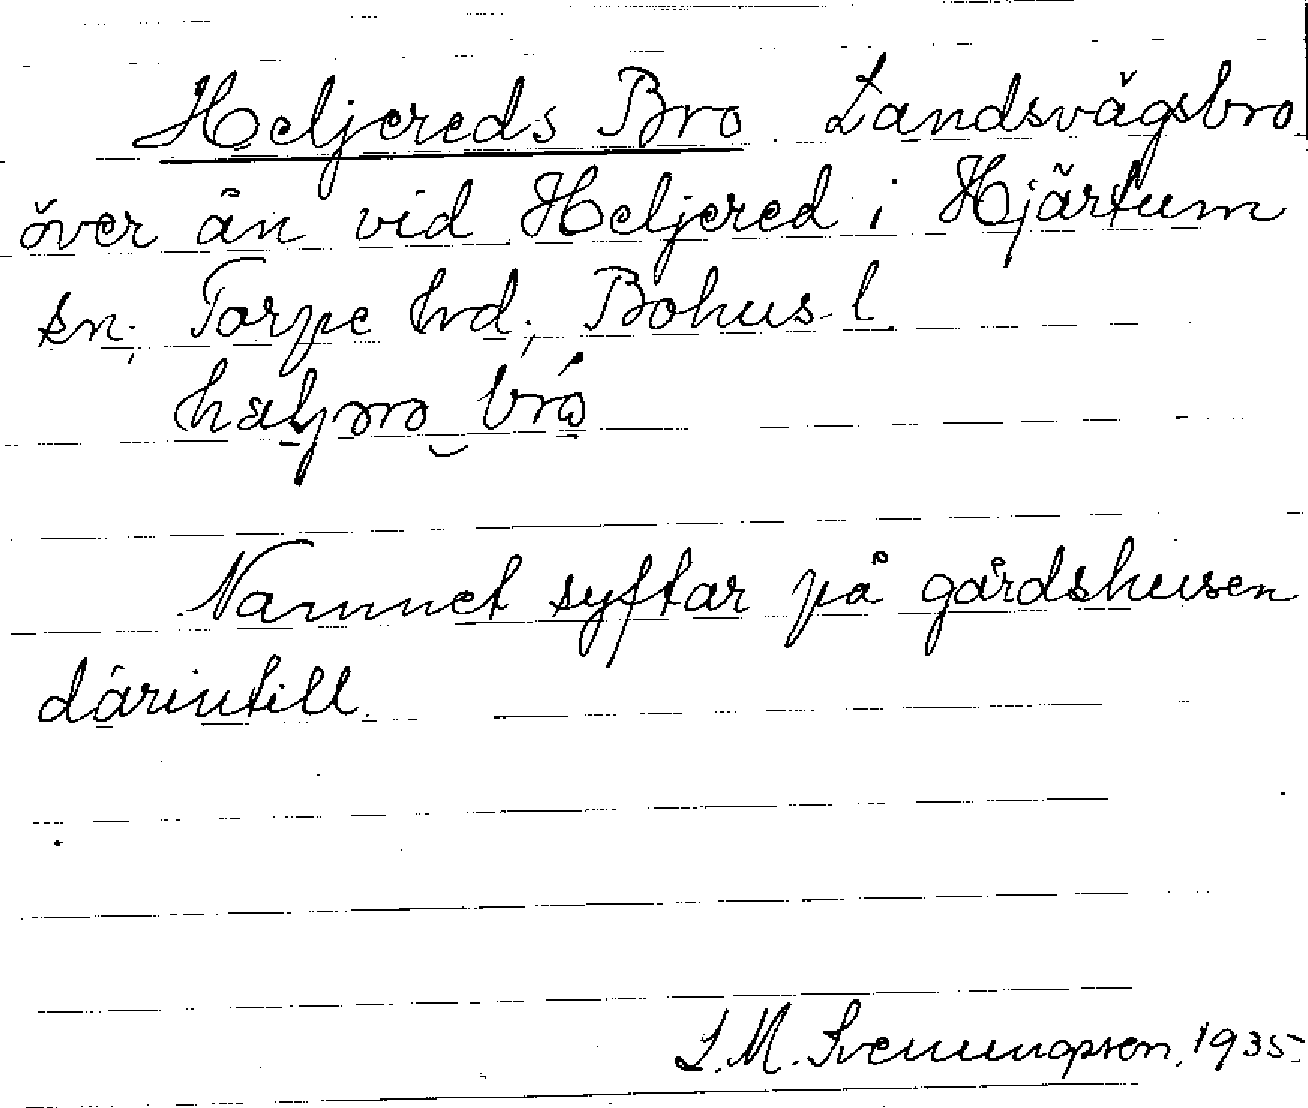 Heljereds Bro. Landsvägsbro
över ån vid Heljered i Hjärtum
sn; Torpe hrd; Bohus l.
Namnet syftar på gårdshusen
därintill.
S. M. Svenungsson, 1935